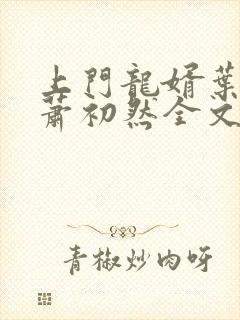 上門龍婿葉
蕭初然全文
青椒炒肉呀